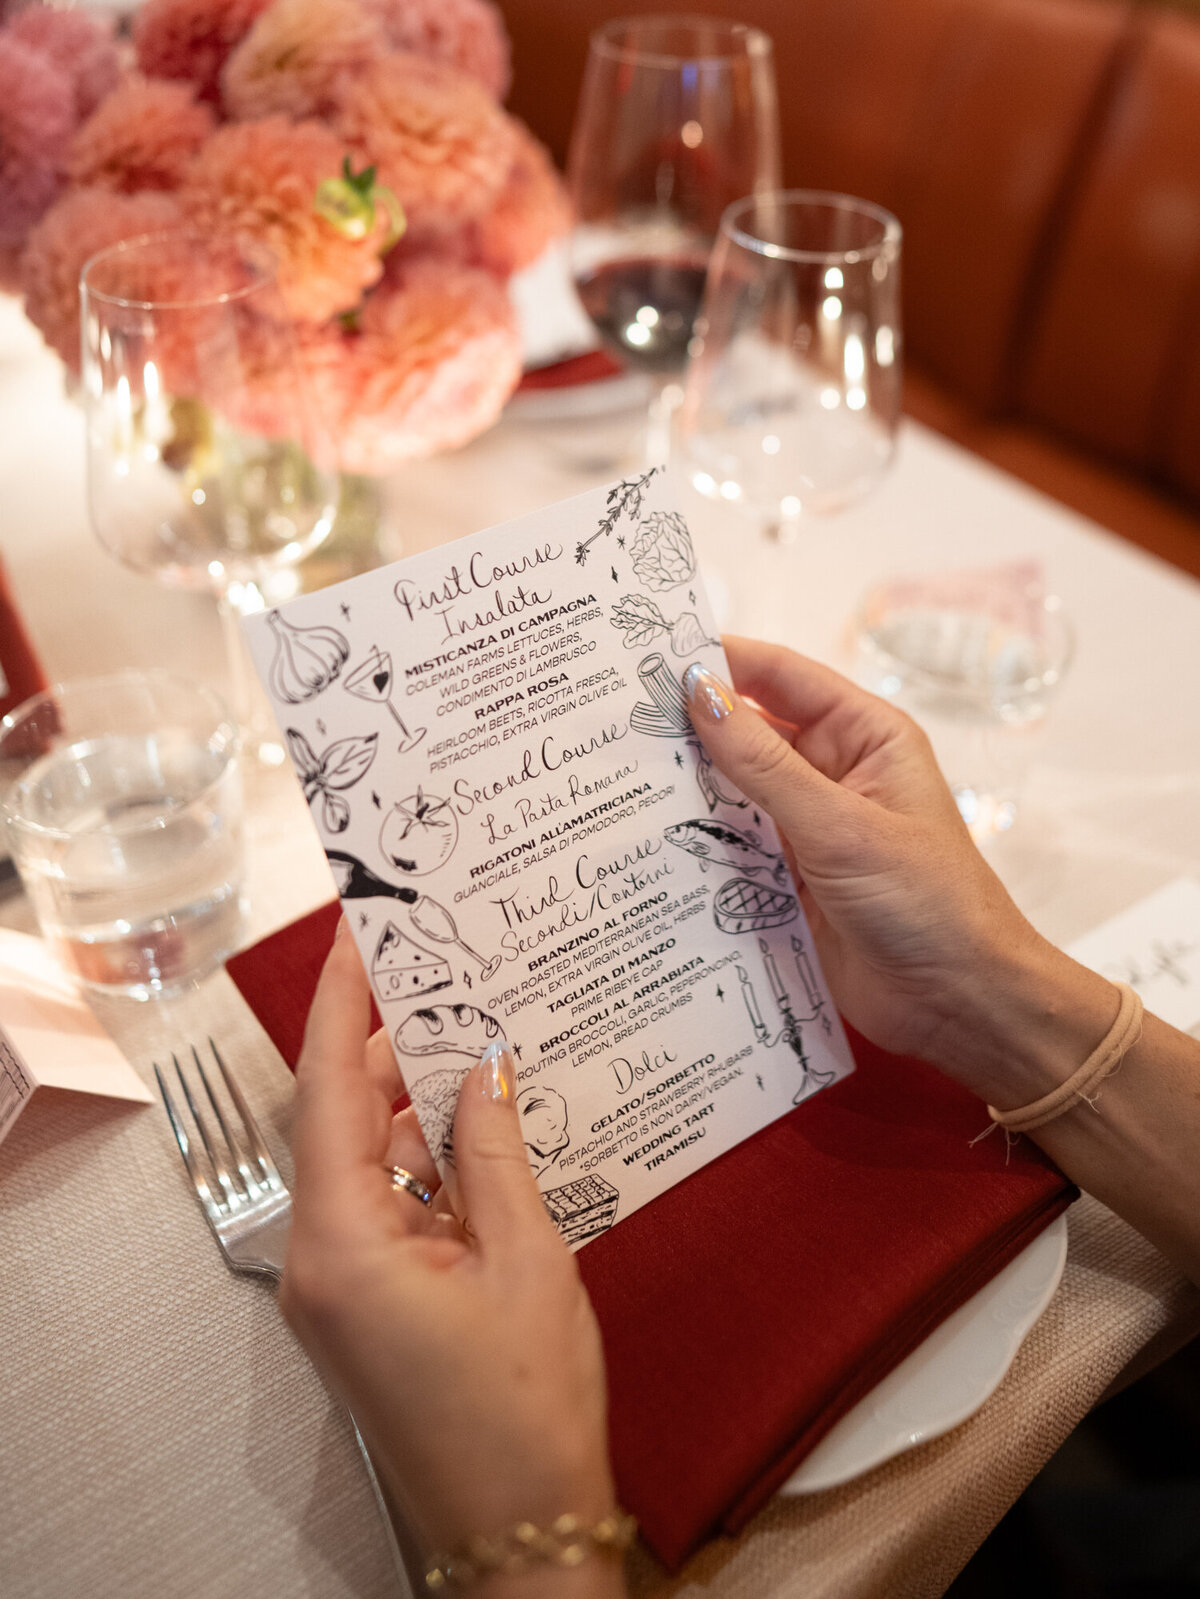 First Course
Insalata
MISTICANZA DI CAMPAGNA
COLEMAN FARMS LETTUCES, HERBS,
WILD GREENS & FLOWERS,
CONDIMENTO DI LAMBRUSCO
RAPPA ROSA
HEIRLOOM BEETS, RICOTTA FRESCA,
PISTACCHIO, EXTRA VIRGIN OLIVE OIL
Second Course
La Pasta Romana
RIGATONI ALL'AMATRICIANA
GUANCIALE, SALSA DI POMODORO, PECORI
Third Course
Secondi/Contorni
BRANZINO AL FORNO
OVEN ROASTED MEDITERRANEAN SEA BASS,
LEMON, EXTRA VIRGIN OLIVE OIL, HERBS
TAGLIATA DI MANZO
PRIME RIBEYE CAP
BROCCOLI AL ARRABIATA
ROUTING BROCCOLI, GARLIC, PEPERONCINO,
LEMON, BREAD CRUMBS
Dolci
GELATO/SORBETTO
PISTACHIO AND STRAWBERRY RHUBARB
*SORBETTO IS NON DAIRY/VEGAN.
WEDDING TART
TIRAMISU